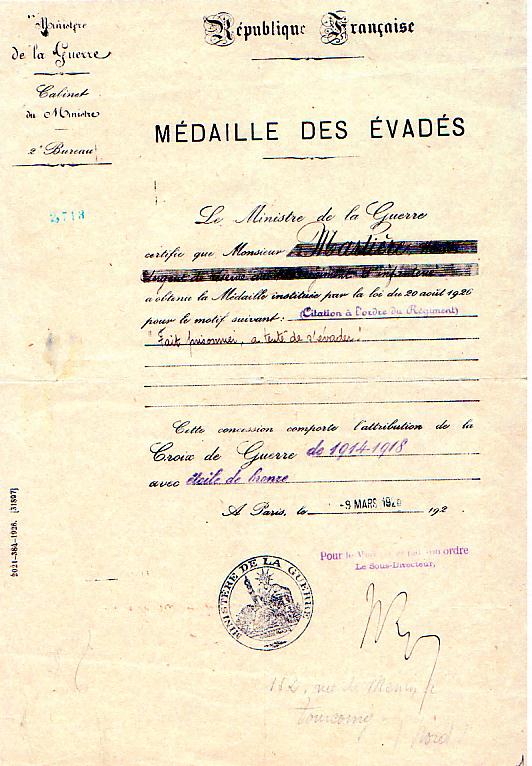 Ministère
de la Guerre
Cabinet
du Ministre
2e Bureau
République Française
MÉDAILLE DES ÉVADÉS
2,713
Le Ministre de la Guerre
certifie que Monsieur
a obtenu la Médaille instituée par la loi du 20 août 1926
pour le motif suivant: (Citation à l'ordre du Régiment)
"Fait prisonnier, a tenté de s'évader."
Cette concession comporte l'attribution de la
Croix de Guerre de 1914-1918
avec étoile de bronze
A Paris, le -9 MARS 192 192
Pour le et par son ordre
Le Sous-Directeur,
MINISTÈRE DE LA GUERRE
2021-384-1926. [31897]
182, rue de
Tourcoing
Nord